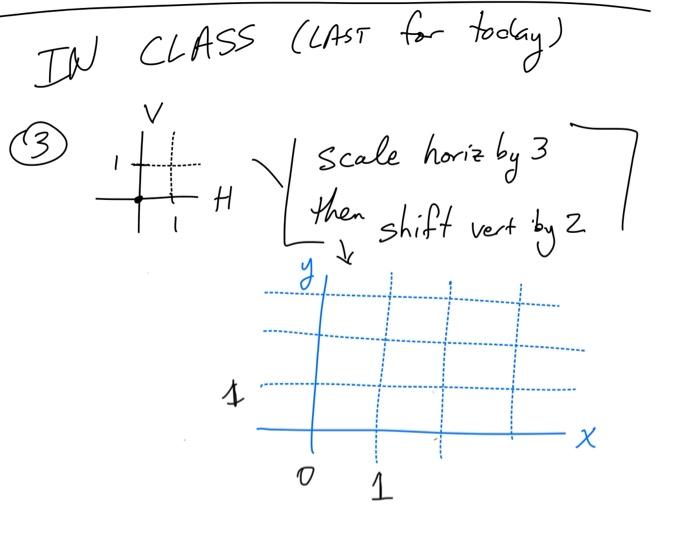 IN CLASS (LAST for today)
③
V
1
H
1
scale horiz by 3
then shift vert by 2
y
1
x
0
1